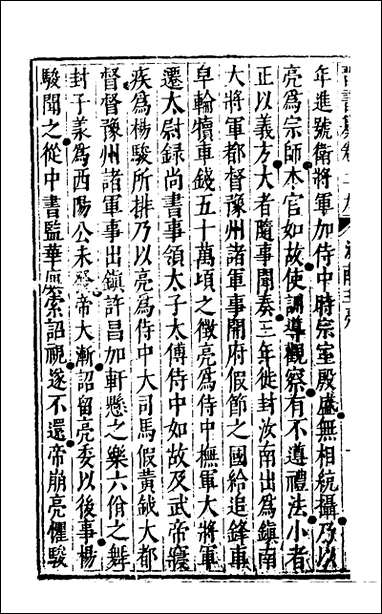 年進號衛將軍加侍中時宗室殷盛無相統攝乃以
亮爲宗師本官如故使訓導觀察有不遵禮法小者
正以義方大者隨事聞奏三年徙封汝南出爲鎮南
大將軍都督豫州諸軍事開府假節之國給追鋒車
皁輪犢車錢五十萬頃之徵亮爲侍中撫軍大將軍
遷太尉録尚書事領太子太傅侍中如故及武帝寢
疾爲楊駿所排乃以亮爲侍中大司馬假黃鉞大都
督督豫州諸軍事出鎮許昌加軒懸之樂六佾之舞
封子羕爲西陽公未發帝大漸詔留亮委以後事楊
駿聞之從中書監華廙索詔視遂不還帝崩亮懼駿